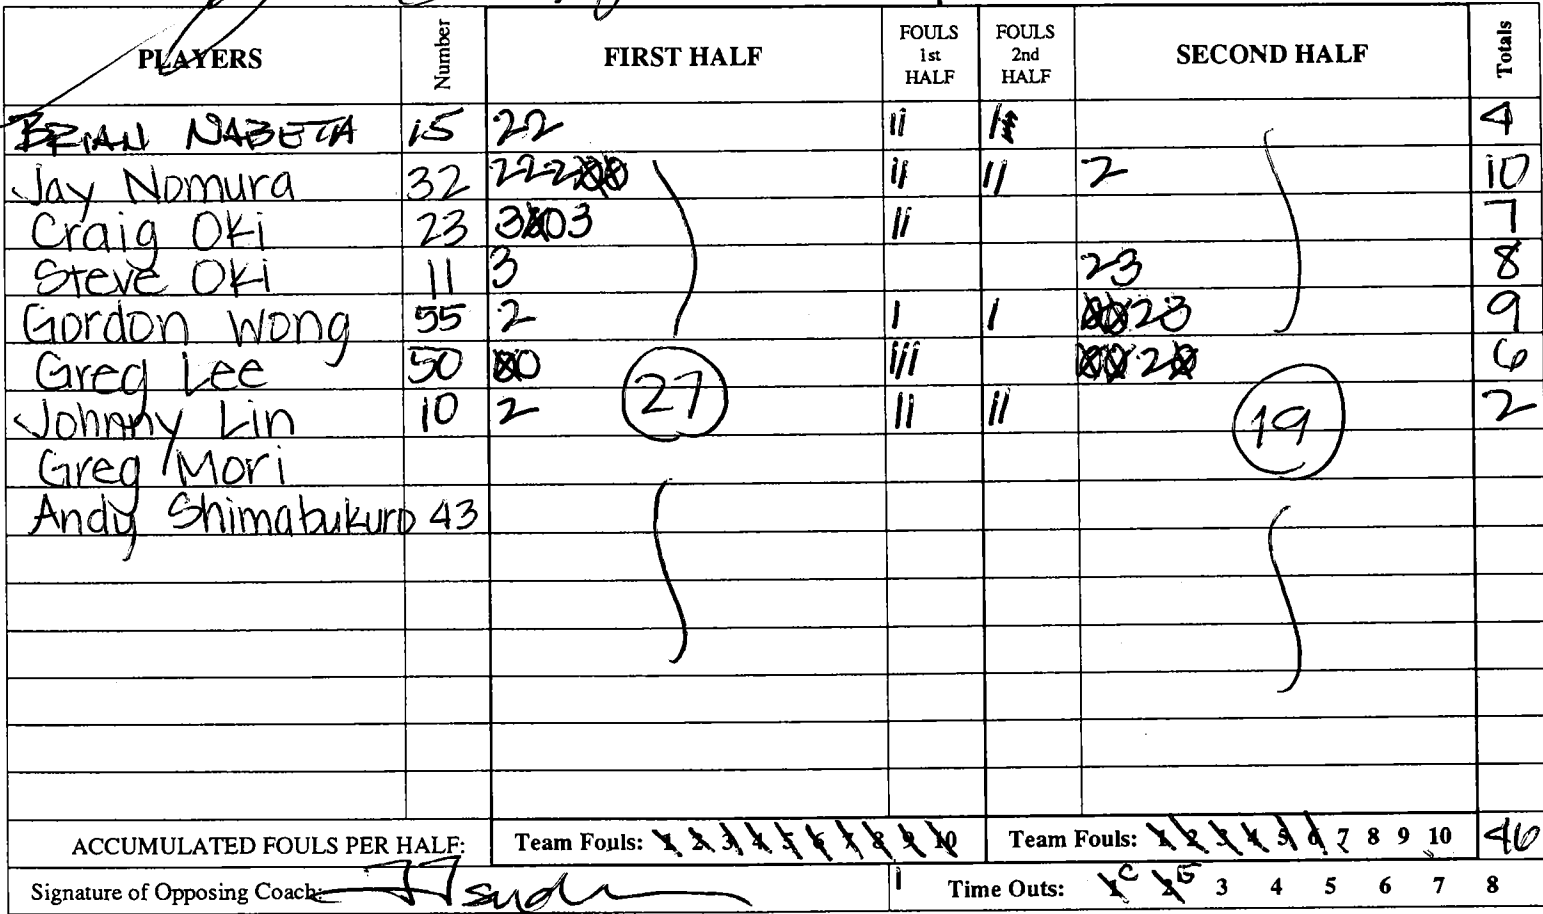 PLAYERS Number FIRST HALF FOULS 1st HALF FOULS 2nd HALF SECOND HALF Totals
BRIAN NABETA 15 22 II I 4
Jay Nomura 32 22200 II II 2 10
Craig Oki 23 3003 II 7
Steve Oki 11 3 23 8
Gordon Wong 55 2 I I 0023 9
Greg Lee 50 00 III 0020 6
Johnny Lin 10 2 II II 2
27
19
Greg Mori
Andy Shimabukuro 43
ACCUMULATED FOULS PER HALF: Team Fouls: 1 2 3 4 5 6 7 8 9 10 Team Fouls: 1 2 3 4 5 6 7 8 9 10 46
Signature of Opposing Coach: Time Outs: 1 C 2 3 4 5 6 7 8